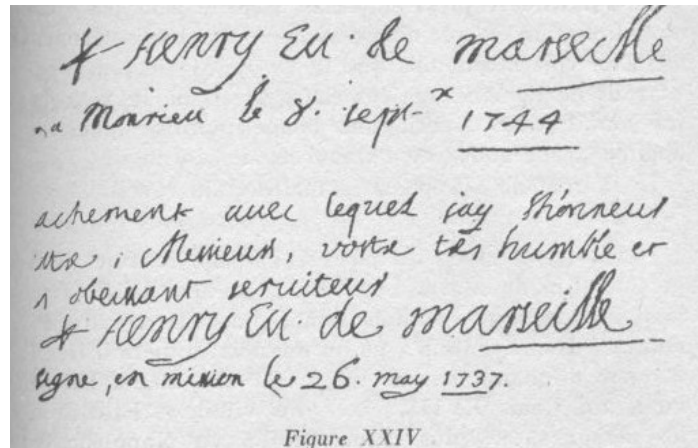 + Henry Ev. de marseille
a Mourieu le 8. sept. x 1744
achement avec lequel jay l'honneur
tre, Messieurs, votre tres humble et
obeissant serviteur
+ Henry Ev. de marseille
signe, en mission le 26. may 1737.
Figure XXIV